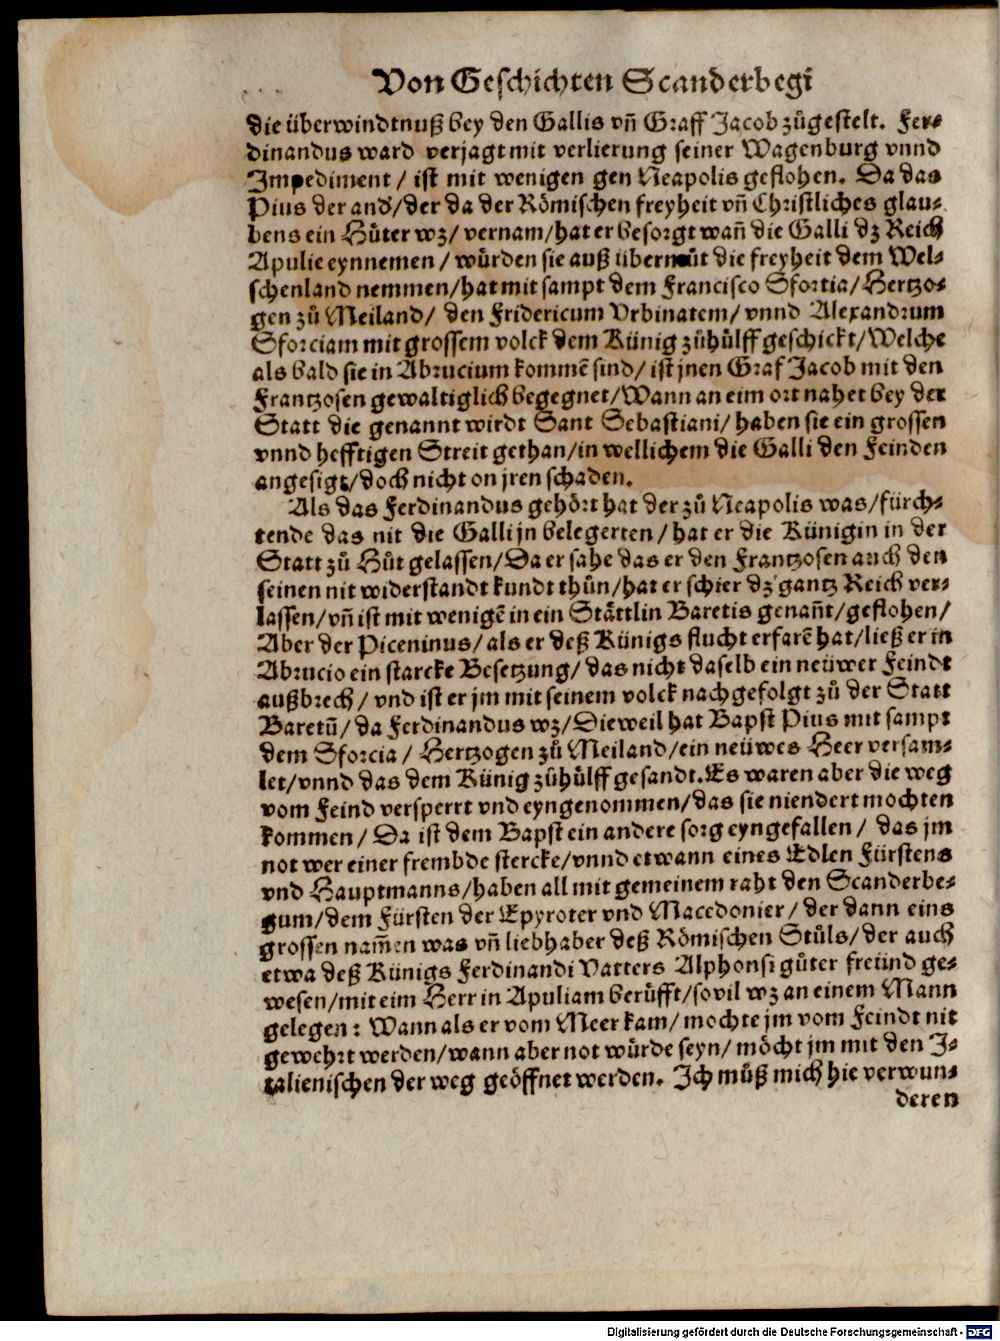 Von Geschichten Scanderbegi
die überwindtnuß bey den Gallis vñ Graff Jacob zůgestelt. Fer-
dinandus ward verjagt mit verlierung seiner Wagenburg vnnd
Impediment / ist mit wenigen gen Neapolis geflohen. Da das
Pius der and/der da der Römischen freyheit vñ Christliches glau-
bens ein Hüter wz/ vernam/hat er besorgt wañ die Galli dz Reich
Apulie eynnemen / würden sie auß übermůt die freyheit dem Wel-
schenland nemmen/hat mit sampt dem Francisco Sfortia/Hertzo-
gen zů Meiland/ den Fridericum Vrbinatem/ vnnd Alexandrum
Sforciam mit grossem volck dem Künig zůhülff geschickt/Welche
als bald sie in Abrucium kommẽ sind/ ist jnen Graf Jacob mit den
Frantzosen gewaltiglich begegnet/Wann an eim ort nahet bey der
Statt die genannt wirdt Sant Sebastiani/ haben sie ein grossen
vnnd hefftigen Streit gethan/in wellichem die Galli den Feinden
angesigt/doch nicht on jren schaden.
Als das Ferdinandus gehört hat der zů Neapolis was/fürch-
tende das nit die Galli jn belegerten/hat er die Künigin in der
Statt zů Hůt gelassen/Da er sahe das er den Frantzosen auch den
seinen nit widerstandt kundt thůn/hat er schier dz gantz Reich ver-
lassen/vñ ist mit wenigẽ in ein Stättlin Baretis genañt/geflohen/
Aber der Piceninus/als er deß Künigs flucht erfarẽ hat/ließ er in
Abrucio ein starcke Besetzung/das nicht daselb ein neüwer Feindt
außbrech/ vnd ist er jm mit seinem volck nachgefolgt zů der Statt
Baretū/da Ferdinandus wz/Dieweil hat Bapst Pius mit sampt
dem Sforcia / Hertzogen zů Meiland/ein neüwes Heer versam-
let/vnnd das dem Künig zůhülff gesandt. Es waren aber die weg
vom Feind versperrt vnd eyngenommen/das sie niendert mochten
kommen/ Da ist dem Bapst ein andere sorg eyngefallen/ das jm
not wer einer frembde stercke/vnnd etwann eines Edlen Fürstens
vnd Hauptmanns/haben all mit gemeinem raht den Scanderbe-
gum/dem Fürsten der Epyroter vnd Macedonier/der dann eins
grossen nam̃en was vñ liebhaber deß Römischen Stůls/der auch
etwa deß Künigs Ferdinandi Vatters Alphonsi gůter freünd ge-
wesen/mit eim Herr in Apuliam berüfft/sovil wz an einem Mann
gelegen: Wann als er vom Meer kam/mochte jm vom Feindt nit
gewehrt werden/wann aber not würde seyn/ möcht jm mit den I-
talienischen der weg geöffnet werden. Ich můß mich hie verwun-
deren
Digitalisierung gefördert durch die Deutsche Forschungsgemeinschaft - DFG